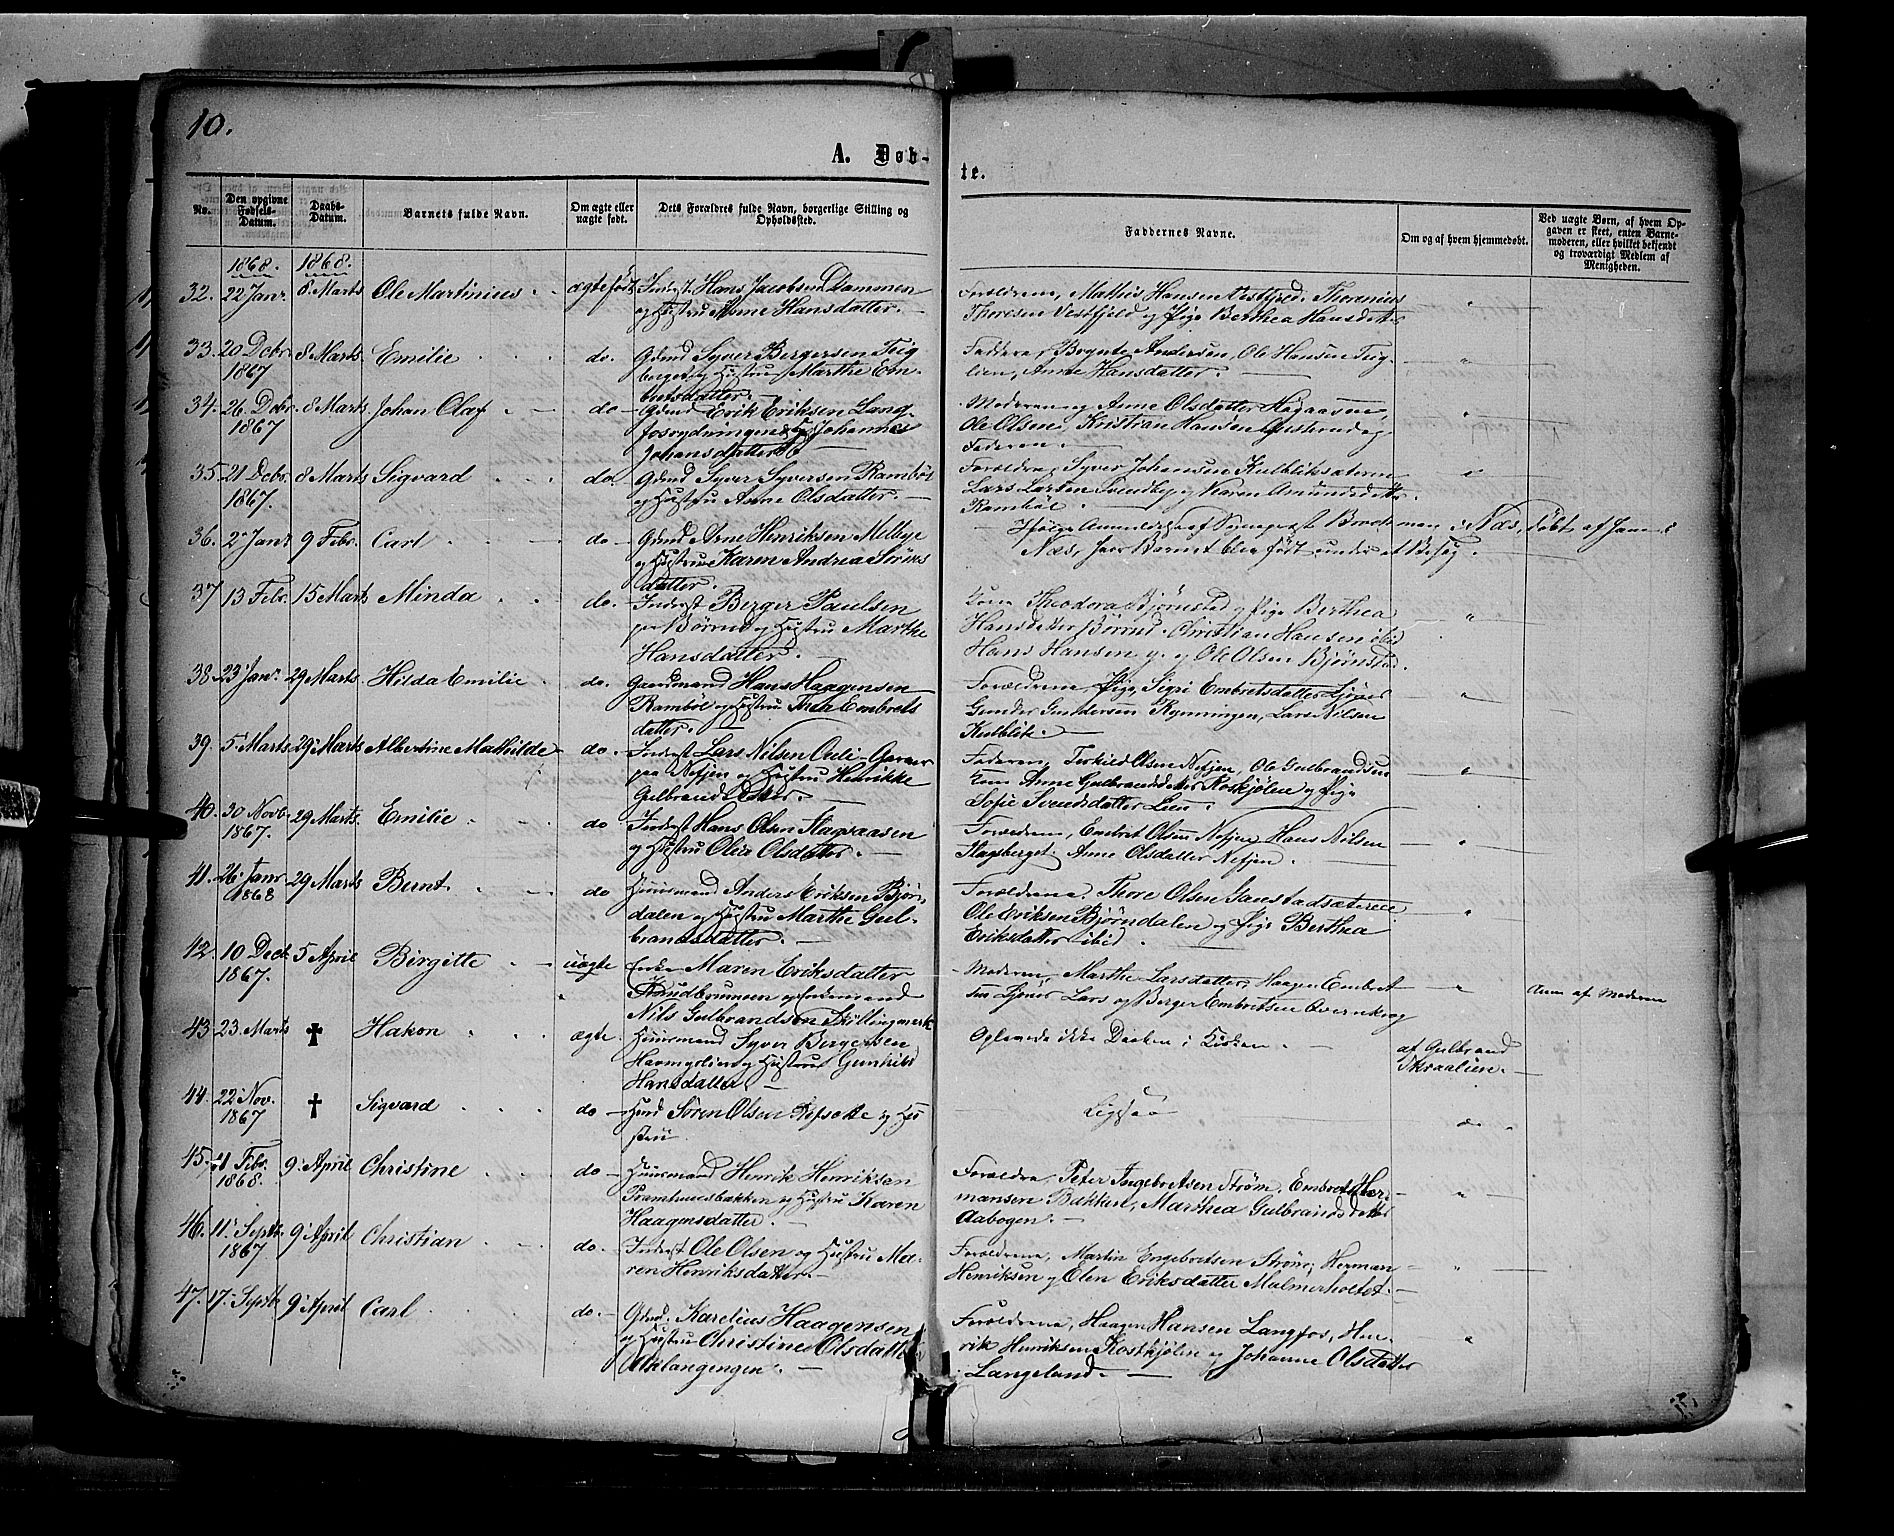 10.
A. Døb-
te.
No.
Den opgivne
Fødsels-
Datum.
Daabs-
Datum.
Barnets fulde Navn.
Om ægte eller
uægte født.
Dets Forældres fulde Navn, borgerlige Stilling og
Opholdssted.
Faddernes Navne.
Om og af hvem hjemmedøbt.
Ved uægte Børn, af hvem Op-
gaven er skeet, enten Barne-
moderen, eller hvilket bekjendt
og troværdigt Medlem af
Menigheden.
1868. 1868.
32. 22 Janr. 8 Marts Ole Martinius ægtefødt Inderst Hans Jacobsen Dammen
og Hustru Anne Hansdatter.
Forældrene, Mathis Hansen
Thoresen Vestfjeld og Pige Berthea Hansdatter
33. 20 Decbr. 8 Marts Emilie do. Gbmd Syver Bergersen Teig
1867 berget og Hustru Marthe Em-
bretsdatter.
Faddere, Andersen, Ole Hansen Teig-
lien, Anne Hansdatter.
34. 26 Decbr. 8 Marts Johan Olaf do Gbmd Erik Eriksen Lang-
1867 fosrydningen Johanne
Johansdatter
Moderen og Anne Olsdatter Hagaasen,
Ole Olsen, Kristian Hansen og
Faderen.
35. 21 Decbr. 8 Marts Sigvard do Gbmd Syver Syversen Rambøl
1867. og Hustru Anne Olsdatter.
Forældre, Syver Johansen Kulbliksæteren
Lars Larsen Svendby og Karen Amundsdatter
Rambøl.
36. 2 Janr 9 Febr. Carl do. Gbmd Arne Henriksen Melbye
og Hustru Karen Andrea Sørens
datter.
Ifølge Anmeldelse af Sognepræst Brockman i Næs, døbt af ham i
Næs, hvor Barnet blev født under et Besøg.
37 13 Febr. 15 Marts Minda do. Inderst Berger Paulsen
paa Børud og Hustru Marthe
Hansdatter.
Kone Theodora Bjørnstad og Pige Berthea
Hansdatter Børud. Christian Hansen ibid
Hans Hansen og Ole Olsen Bjørnstad.
38 23 Janr. 29 Marts Hilda Emilie do. Gaardmand Hans Haagensen
Rambøl og Hustru Thea Embrets
datter.
Forældrene, Pige Sigri Embretsdatter
Gunder Gundersen Rynningen, Lars Nilsen
Kulblik.
39. 5 Marts 29 Marts Albertine Mathilde do. Inderst Lars Nilsen
paa Nefjen og Hustru Henrikke
Gulbrandsdatter.
Faderen, Terkild Olsen Nefjen, Ole Gulbrandsen
Kone Anne Gulbrandsdatter Roskjølen og Pige
Sofie Svendsdatter Lien.
40. 30 Novb. 29 Marts. Emilie do Inderst Hans Olsen Hagaasen
1867. og Hustru Olea Olsdatter.
Forældrene, Embret Olsen Nefjen, Hans Nilsen
Hagsberget, Anne Olsdatter Nefjen.
41. 26 Janr 29 Marts Bernt do Huusmand Anders Eriksen Bjørn-
1868 dalen og Hustru Marthe Gul-
brandsdatter.
Forældrene, Thore Olsen
Ole Eriksen Bjørndalen og Pige Berthea
Eriksdatter ibid.
42. 10 Decb 5 April Birgitte uægte Enke Maren Eriksdatter
1867.
Nils Gulbrandsen
Moderen, Marthe Larsdatter, Haagen Embret
sen Lars og Berger Embretsen
Anm. af Moderen
43 23. Marts † Hakon ægte Huusmand Syver Bergersen
og Hustru Gunhild
Hansdatter
Oplevede ikke Daaben i Kirken.
af Gulbrand
Skraalien.
44. 22 Nov. † Sigvard do Søren Olsen og Hu-
1867 stru
Ligesaa do
45. Febr. 9 April Christine do Huusmand Henrik Henriksen
1868. og Hustru Karen
Haagensdatter.
Forældre, Peter Ingebretsen Strøm, Embret Her-
mansen Bakken, Marthea Gulbrandsdatter
Aabogen.
46. 11 Septb. 9 April Christian do. Inderst Ole Olsen og Hustru Ma-
1867 ren Henriksdatter.
Forældrene, Martin Engebretsen Strøm, Herman
Henriksen og Elen Eriksdatter Malmerholtet.
47. 17 Septb 9 April Carl do. Gbmd. Karelius Haagensen
og Hustru Christine Olsdatter
Utklangengen.
Forældrene, Haagen Hansen Langfos, Hen-
rik Henriksen Roskjølen og Johanne Olsdatter
Langeland.